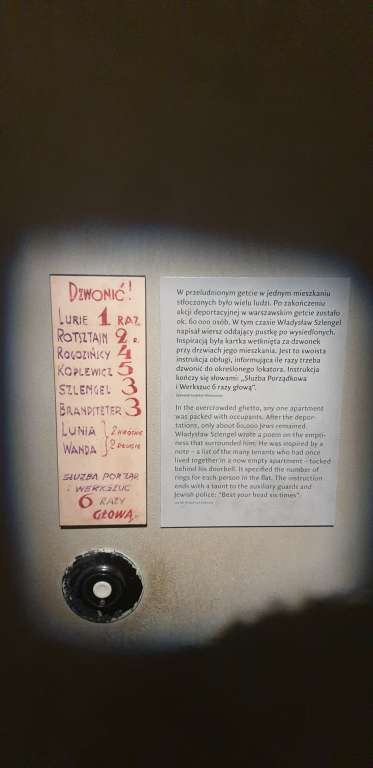 DZWONIĆ!
LURIE 1 RAZ
ROTSZTAJN 2 R.
ROGOZIŃCY 4
KOPLEWICZ 5
SZLENGEL 3
BRANDTETER 3
LUNIA } 2 KRÓTKIE
WANDA } 2 DŁUGIE
SŁUŻBA PORZĄD.
I WERKSZUC
6 RAZY
GŁOWĄ
W przeludnionym getcie w jednym mieszkaniu
stłoczonych było wielu ludzi. Po zakończeniu
akcji deportacyjnej w warszawskim getcie zostało
ok. 60 000 osób. W tym czasie Władysław Szlengel
napisał wiersz oddający pustkę po wysiedlonych.
Inspiracją była kartka wetknięta za dzwonek
przy drzwiach jego mieszkania. Jest to swoista
instrukcja obsługi, informująca ile razy trzeba
dzwonić do określonego lokatora. Instrukcja
kończy się słowami: „Służba Porządkowa
i Werkszuc 6 razy głową".
In the overcrowded ghetto, any one apartment
was packed with occupants. After the depor-
tations, only about 60,000 Jews remained.
Władysław Szlengel wrote a poem on the empti-
ness that surrounded him. He was inspired by a
note – a list of the many tenants who had once
lived together in a now empty apartment – tucked
behind his doorbell. It specified the number of
rings for each person in the flat. The instruction
ends with a taunt to the auxiliary guards and
Jewish police: "Beat your head six times".